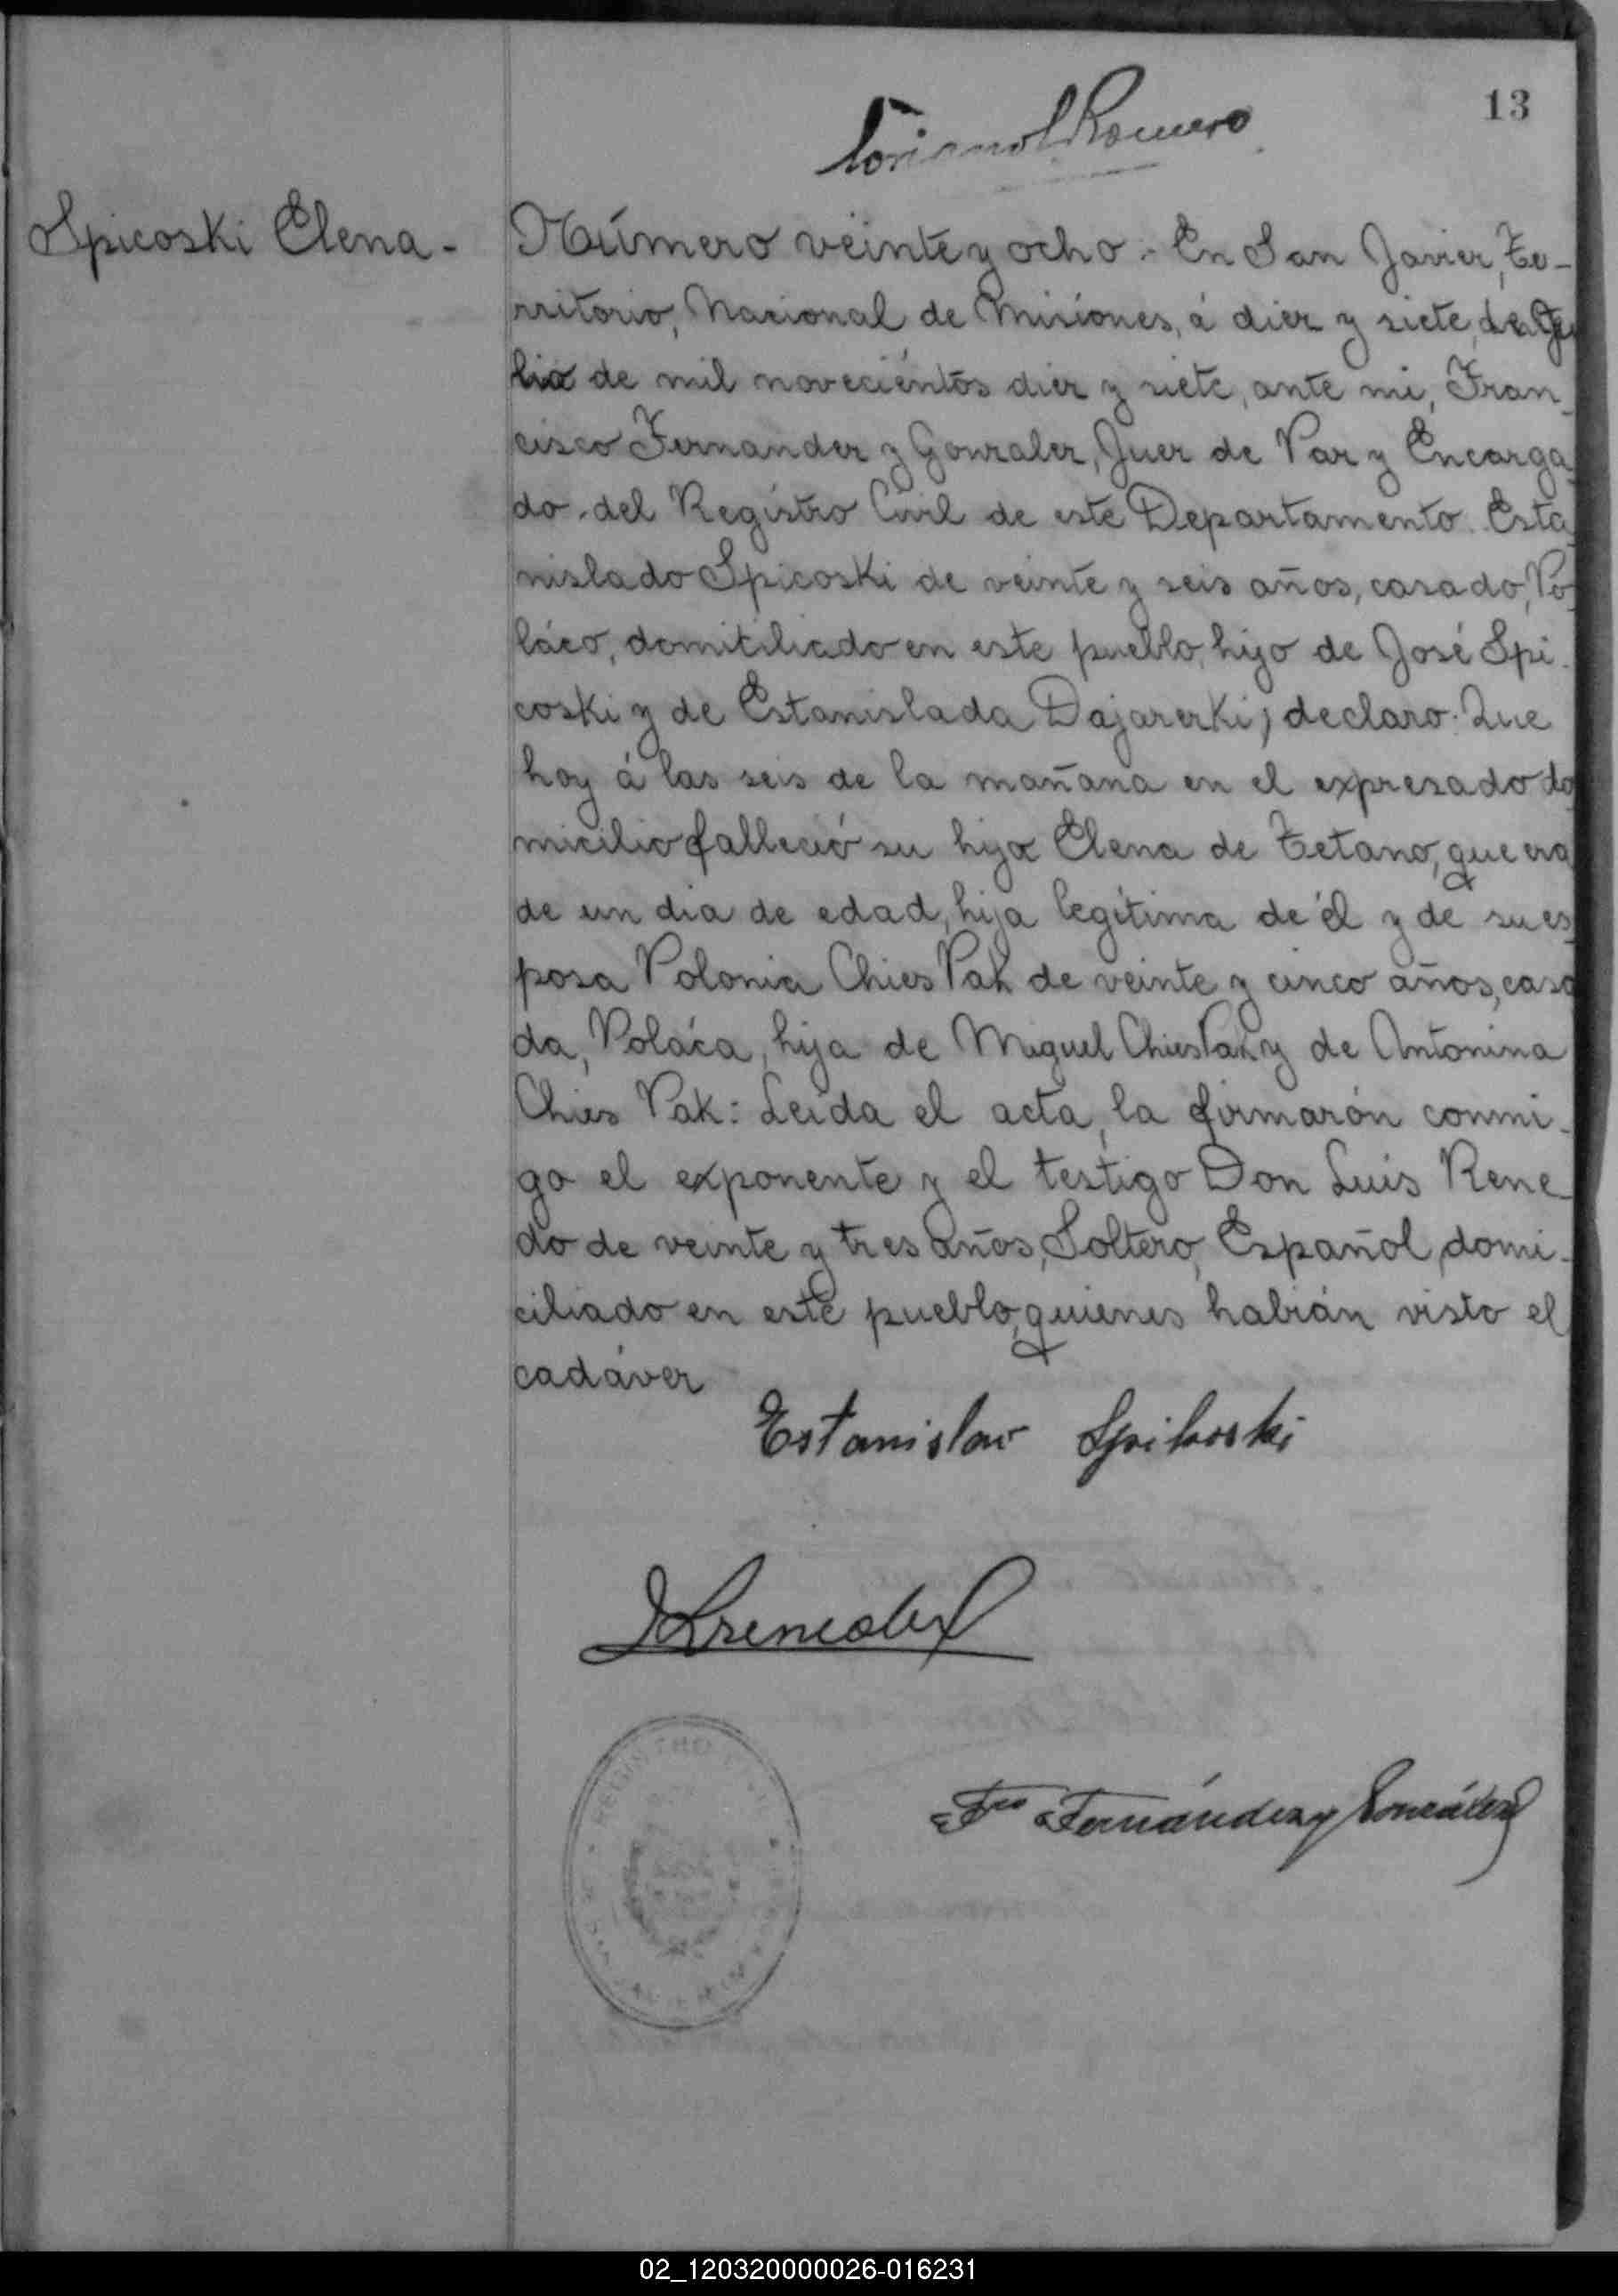 13
Romero
Spicoski Elena-
Número veinte y ocho.- En San Javier, Te-
rritorio, Nacional de Misiones, á diez y siete, de Ju
lio de mil novecientos diez y siete, ante mi, Fran-
cisco Fernandez y Gonzalez, Juez de Paz y Encarga
do del Registro Civil de este Departamento. Esta
nislado Spicoski de veinte y seis años, casado, Po
láco, domiciliado en este pueblo, hijo de José Spi-
coski y de Estanislada Dajarerki; declaro. Que
hoy á las seis de la mañana en el expresado do
micilio falleció su hija Elena de Tetano, que era
de un dia de edad, hija legítima de él y de su es
posa Polonia Chies Pak de veinte y cinco años, casa
da, Poláca, hija de Miguel Chies Pak y de Antonina
Chies Pak: Leida el acta, la firmarón conmi-
go el exponente y el testigo Don Luis Rene
do de veinte y tres años, Soltero, Español, domi-
ciliado en este pueblo, quienes habián visto el
cadáver
Estanislav Spikoski
LRenedo
Fco Fernández y González
02_120320000026-016231